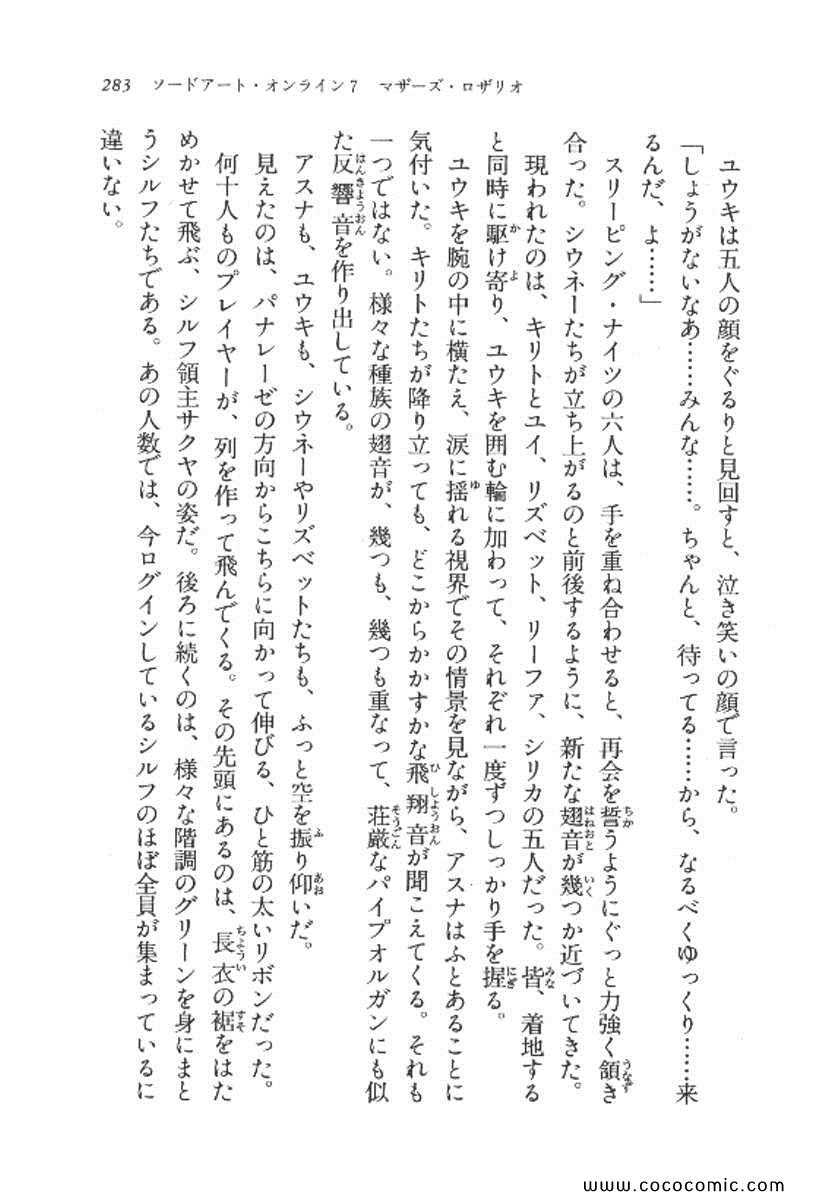 283　ソードアート・オンライン7　マザーズ・ロザリオ
ユウキは五人の顔をぐるりと見回すと、泣き笑いの顔で言った。
「しょうがないなあ……みんな……。ちゃんと、待ってる……から、なるべくゆっくり……来
るんだ、よ……」
スリーピング・ナイツの六人は、手を重ね合わせると、再会を誓うようにぐっと力強く頷き
合った。シウネーたちが立ち上がるのと前後するように、新たな翅音が幾つか近づいてきた。
現われたのは、キリトとユイ、リズベット、リーファ、シリカの五人だった。皆、着地する
と同時に駆け寄り、ユウキを囲む輪に加わって、それぞれ一度ずつしっかり手を握る。
ユウキを腕の中に横たえ、涙に揺れる視界でその情景を見ながら、アスナはふとあることに
気付いた。キリトたちが降り立っても、どこからかかすかな飛翔音が聞こえてくる。それも
一つではない。様々な種族の翅音が、幾つも、幾つも重なって、荘厳なパイプオルガンにも似
た反響音を作り出している。
アスナも、ユウキも、シウネーやリズベットたちも、ふっと空を振り仰いだ。
見えたのは、パナレーゼの方向からこちらに向かって伸びる、ひと筋の太いリボンだった。
何十人ものプレイヤーが、列を作って飛んでくる。その先頭にあるのは、長衣の裾をはた
めかせて飛ぶ、シルフ領主サクヤの姿だ。後ろに続くのは、様々な階調のグリーンを身にまと
うシルフたちである。あの人数では、今ログインしているシルフのほぼ全員が集まっているに
違いない。
www.cococomic.com